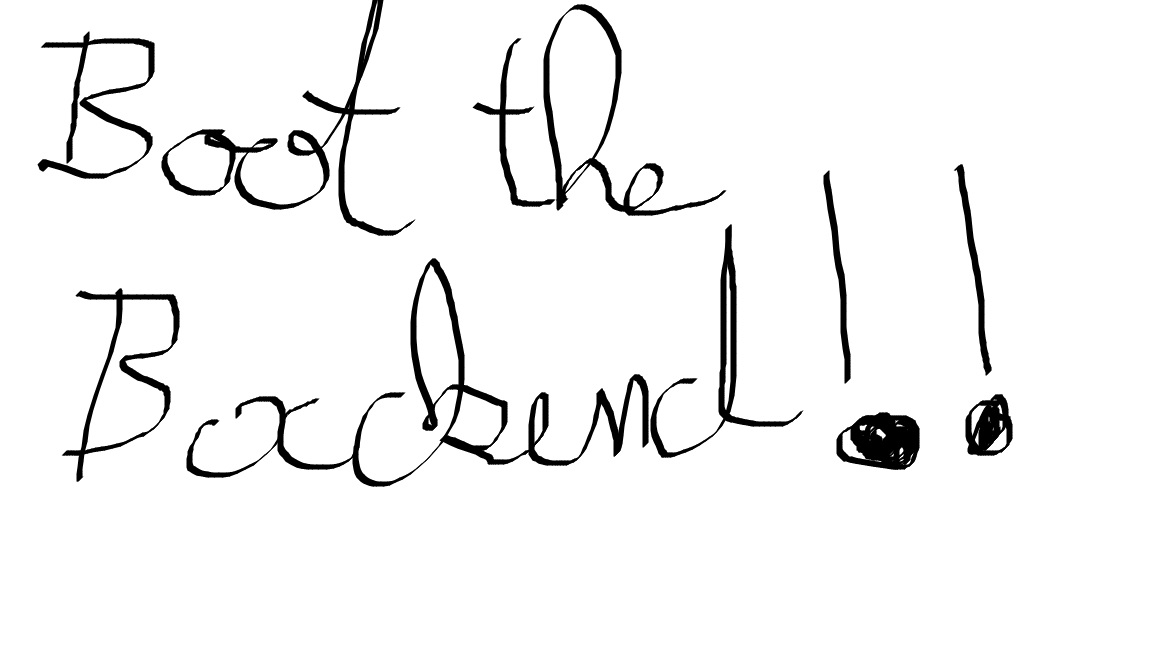 Boot the
Backend!!